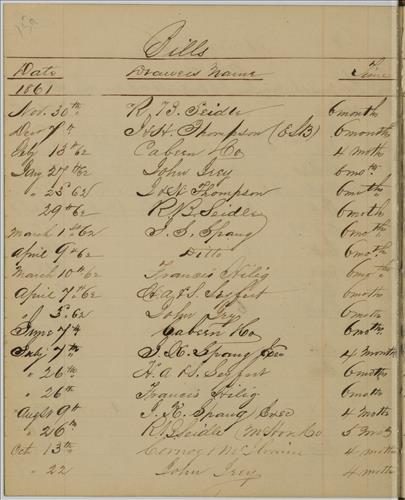 Bills
Date Drawers Name Time
1861
Nov. 30th R. B. Seidle 6 month
Dec 7th J & H. Thompson (E&B) 6 months
13th 62 Cabeen & Co 4 moths
Jany 27th 62 John Grey 6 moth.
" 25th 62 J & H Thompson 6 moths
29th 62 R B Seidle 6 moth
March 1st 62 J. S. Spang 6 moths
April 9th 62 Ditto 6 moth
March 10th 62 Francis Hilig 6 moths
April 7th 62 H. A & S. Seyfert 6 moth
" 5th 62 John Grey 6 moth
June 7th Cabeen & Co 6 moths
July 7th J. K. Spang Exec 4 month
" 26th H. A & S. Seyfert 6 moths
" 26th Francis Hilig 6 moths
Augst 9th J. K. Spang Exec 4 moths
" 26th R B Seidle Co 5 mos
Oct 13th Cornog & McIlvaine 4 moths
" 22 John Grey 4 moths